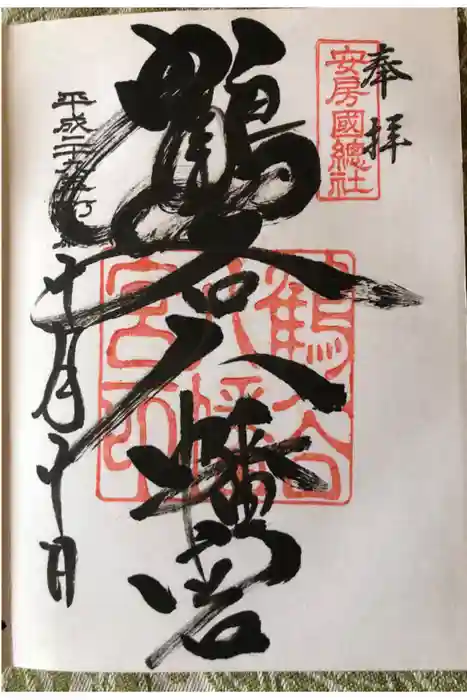 奉拝
安房國總社
鶴谷八幡宮
鶴谷
八幡
宮印
平成二十
十月十日